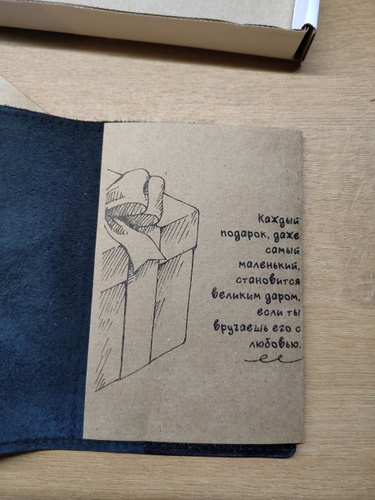 Каждый
подарок, даже
самый
маленький,
становится
великим даром,
если ты
вручаешь его с
любовью.